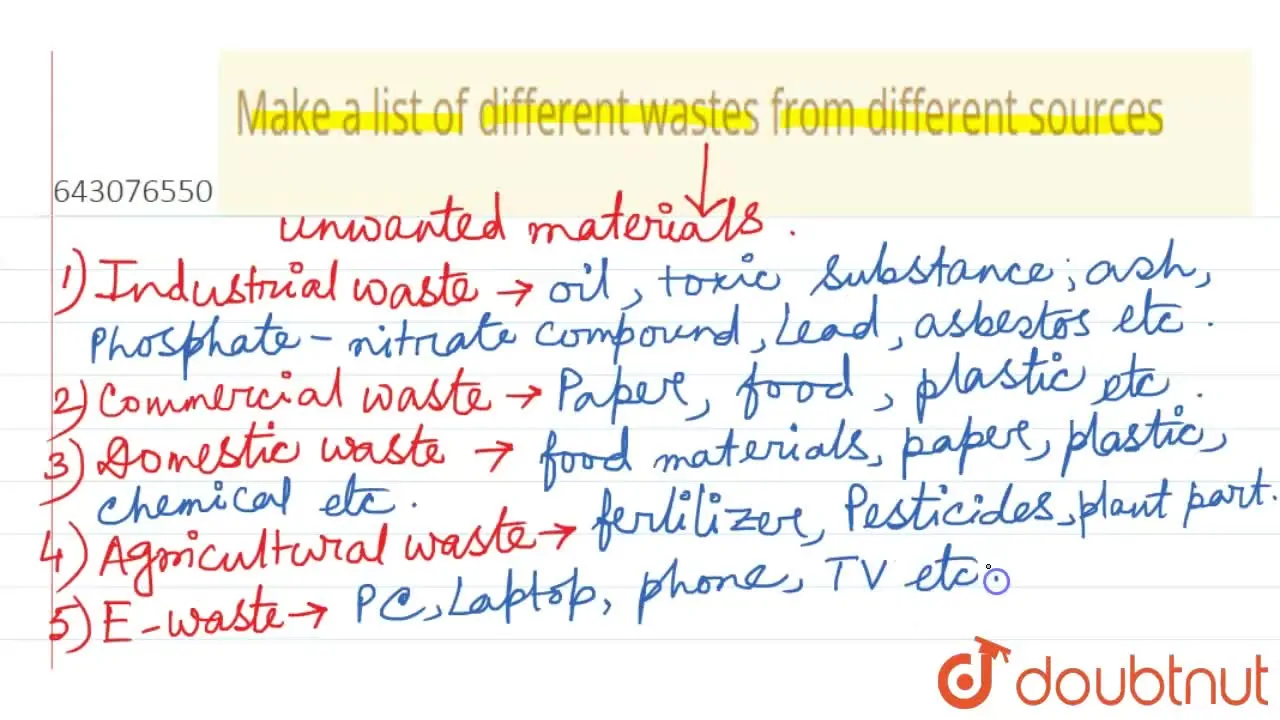 Make a list of different wastes from different sources
643076550
unwanted materials.
1) Industrial waste → oil, toxic substance, ash,
Phosphate - nitrate compound, Lead, asbestos etc.
2) Commercial waste → Paper, food, plastic etc.
3) Domestic waste → food materials, paper, plastic,
chemical etc.
4) Agricultural waste → fertilizer, Pesticides, plant part.
5) E-waste → PC, Laptop, phone, TV etc.
doubtnut